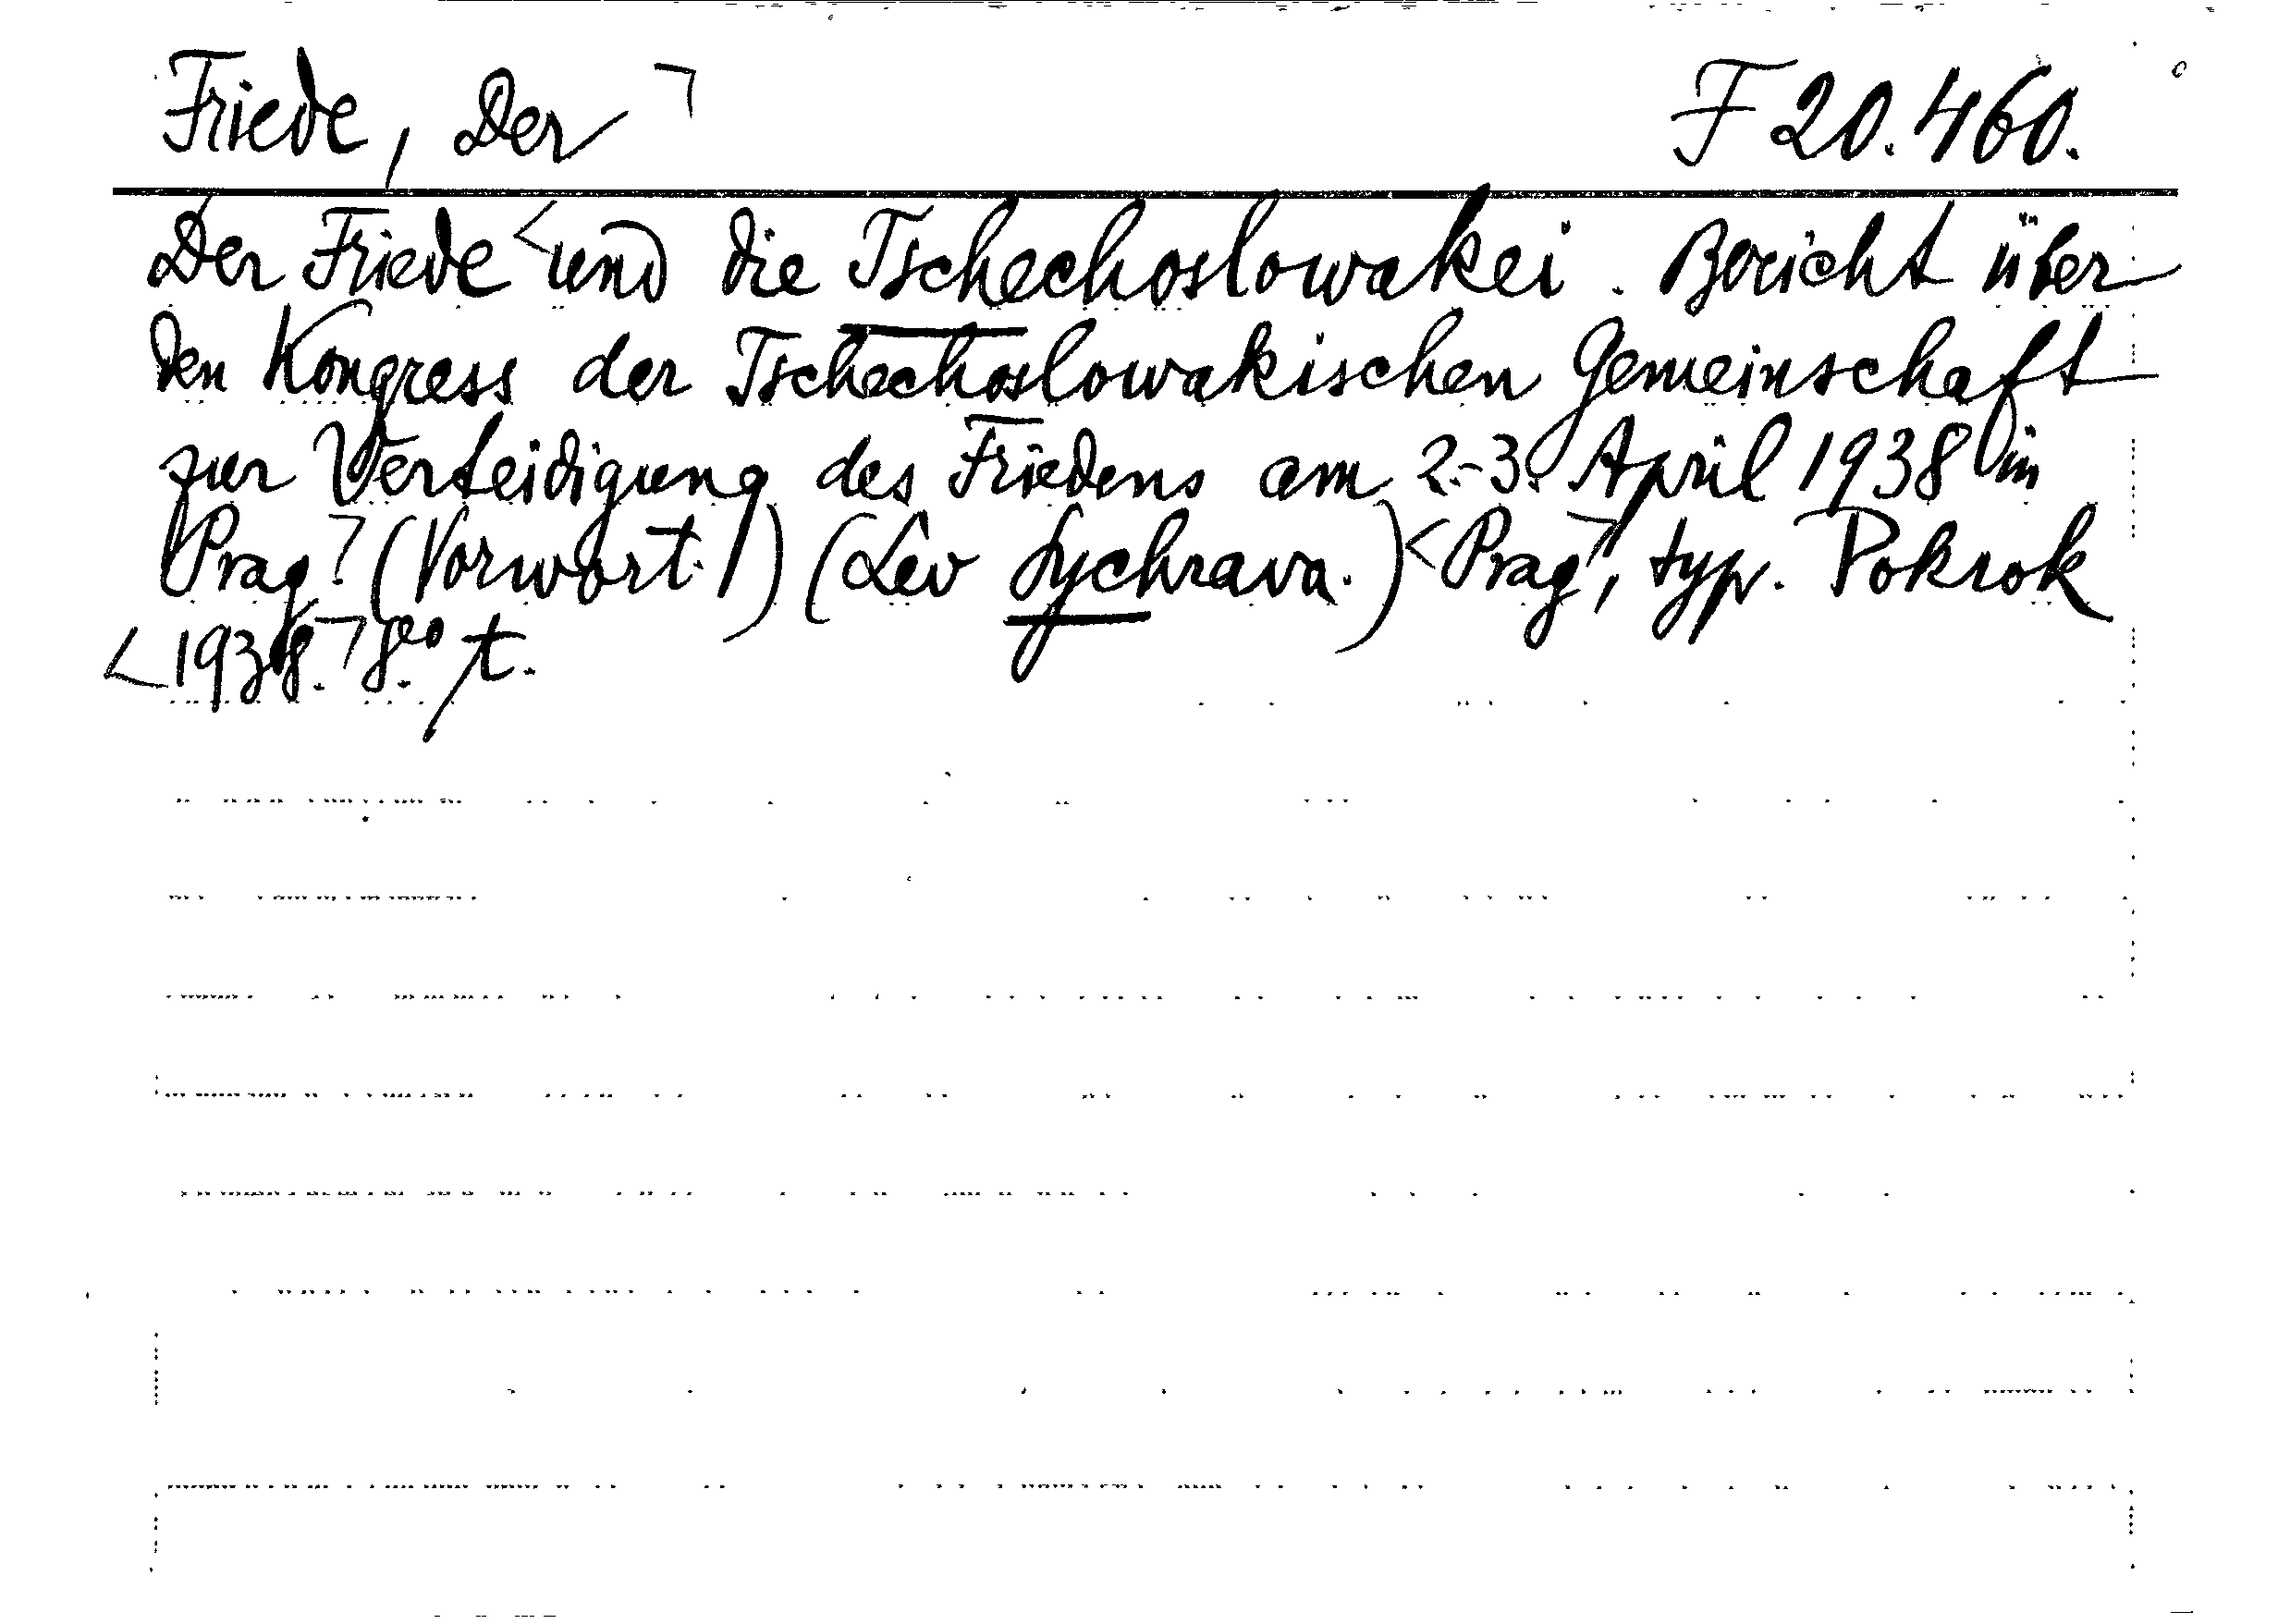 Friede, Der ⌝ F 20.460.
Der Friede < und die Tschechoslowakei. Bericht über
den Kongress der Tschechoslowakischen Gemeinschaft
zur Verteidigung des Friedens am 2.-3. April 1938 in
Prag.⌝ (Vorwort:/) (Lev Sychrava.) < Prag⌝, typ. Pokrok
< 1938.⌝ 8° t.